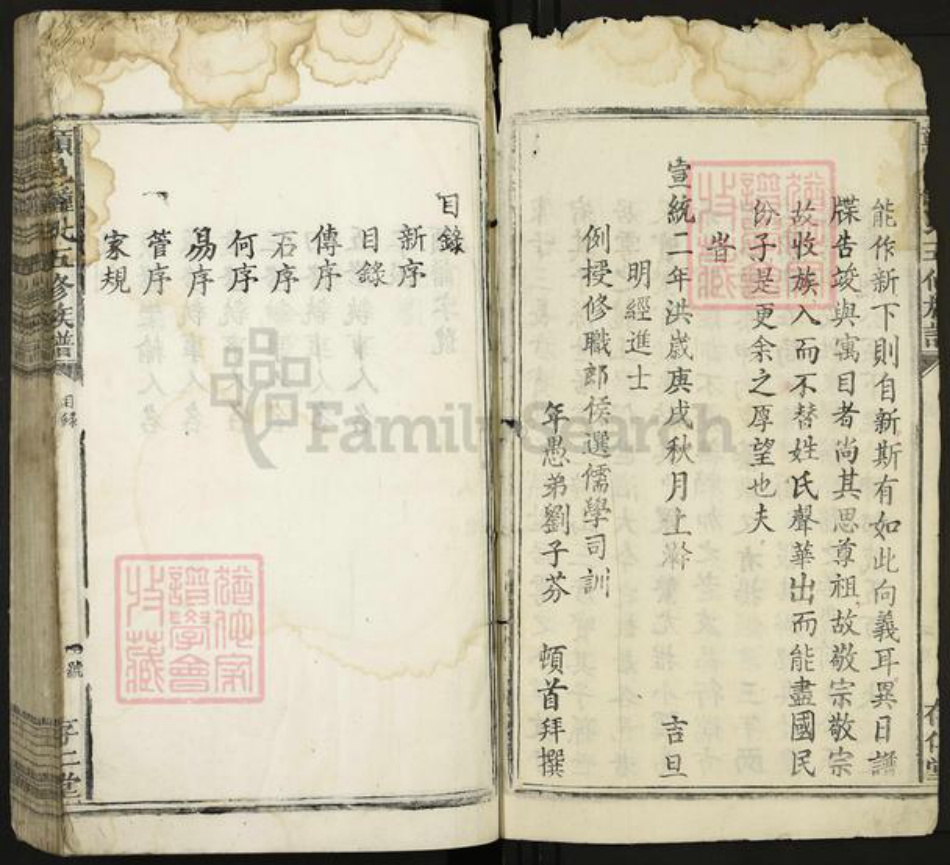 能作新下則自新斯有如此向義耳異日譜
牒告竣與寓目者尚其思尊祖故敬宗敬宗
故收族入而不替姓氏聲華出而能盡國民
份子是更余之厚望也夫
峕
宣統二年洪歲庚戌秋月上澣 吉旦
明經進士
例授修職郎侯選儒學司訓
年愚弟劉子芬 頓首拜撰
目錄
新序
目錄
傳序
石序
何序
易序
管序
家規
五修族譜
目錄
號
存仁堂
FamilySearch